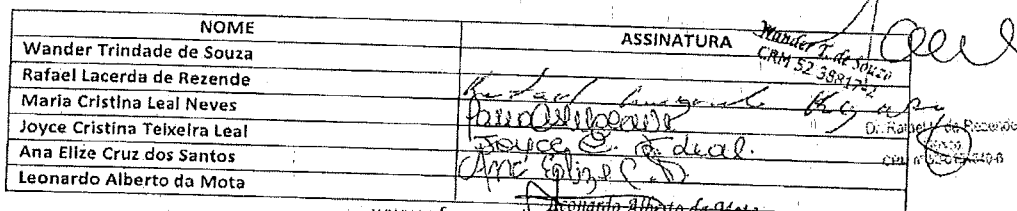 NOME ASSINATURA
Wander Trindade de Souza
Wander T. de Souza
CRM 52 38817-2
Rafael Lacerda de Rezende
Maria Cristina Leal Neves
Dr. Rafael L. de Rezende
Joyce Cristina Teixeira Leal Joyce C. T. Leal.
Ana Elize Cruz dos Santos Ana Elize C. S.
Leonardo Alberto da Mota
Leonardo Alberto da Mota